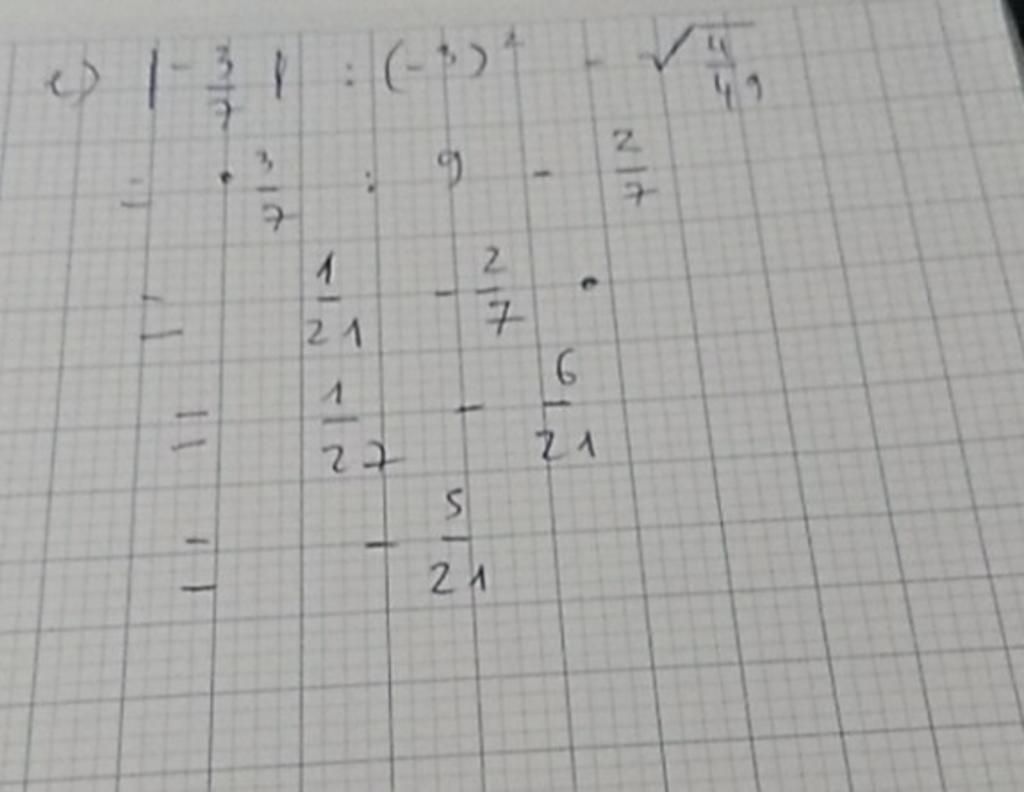 c) |-3/7| : (-3)² - √4/49
= 3/7 : 9 - 2/7
= 1/21 - 2/7
= 1/27 - 6/21
= - 5/21